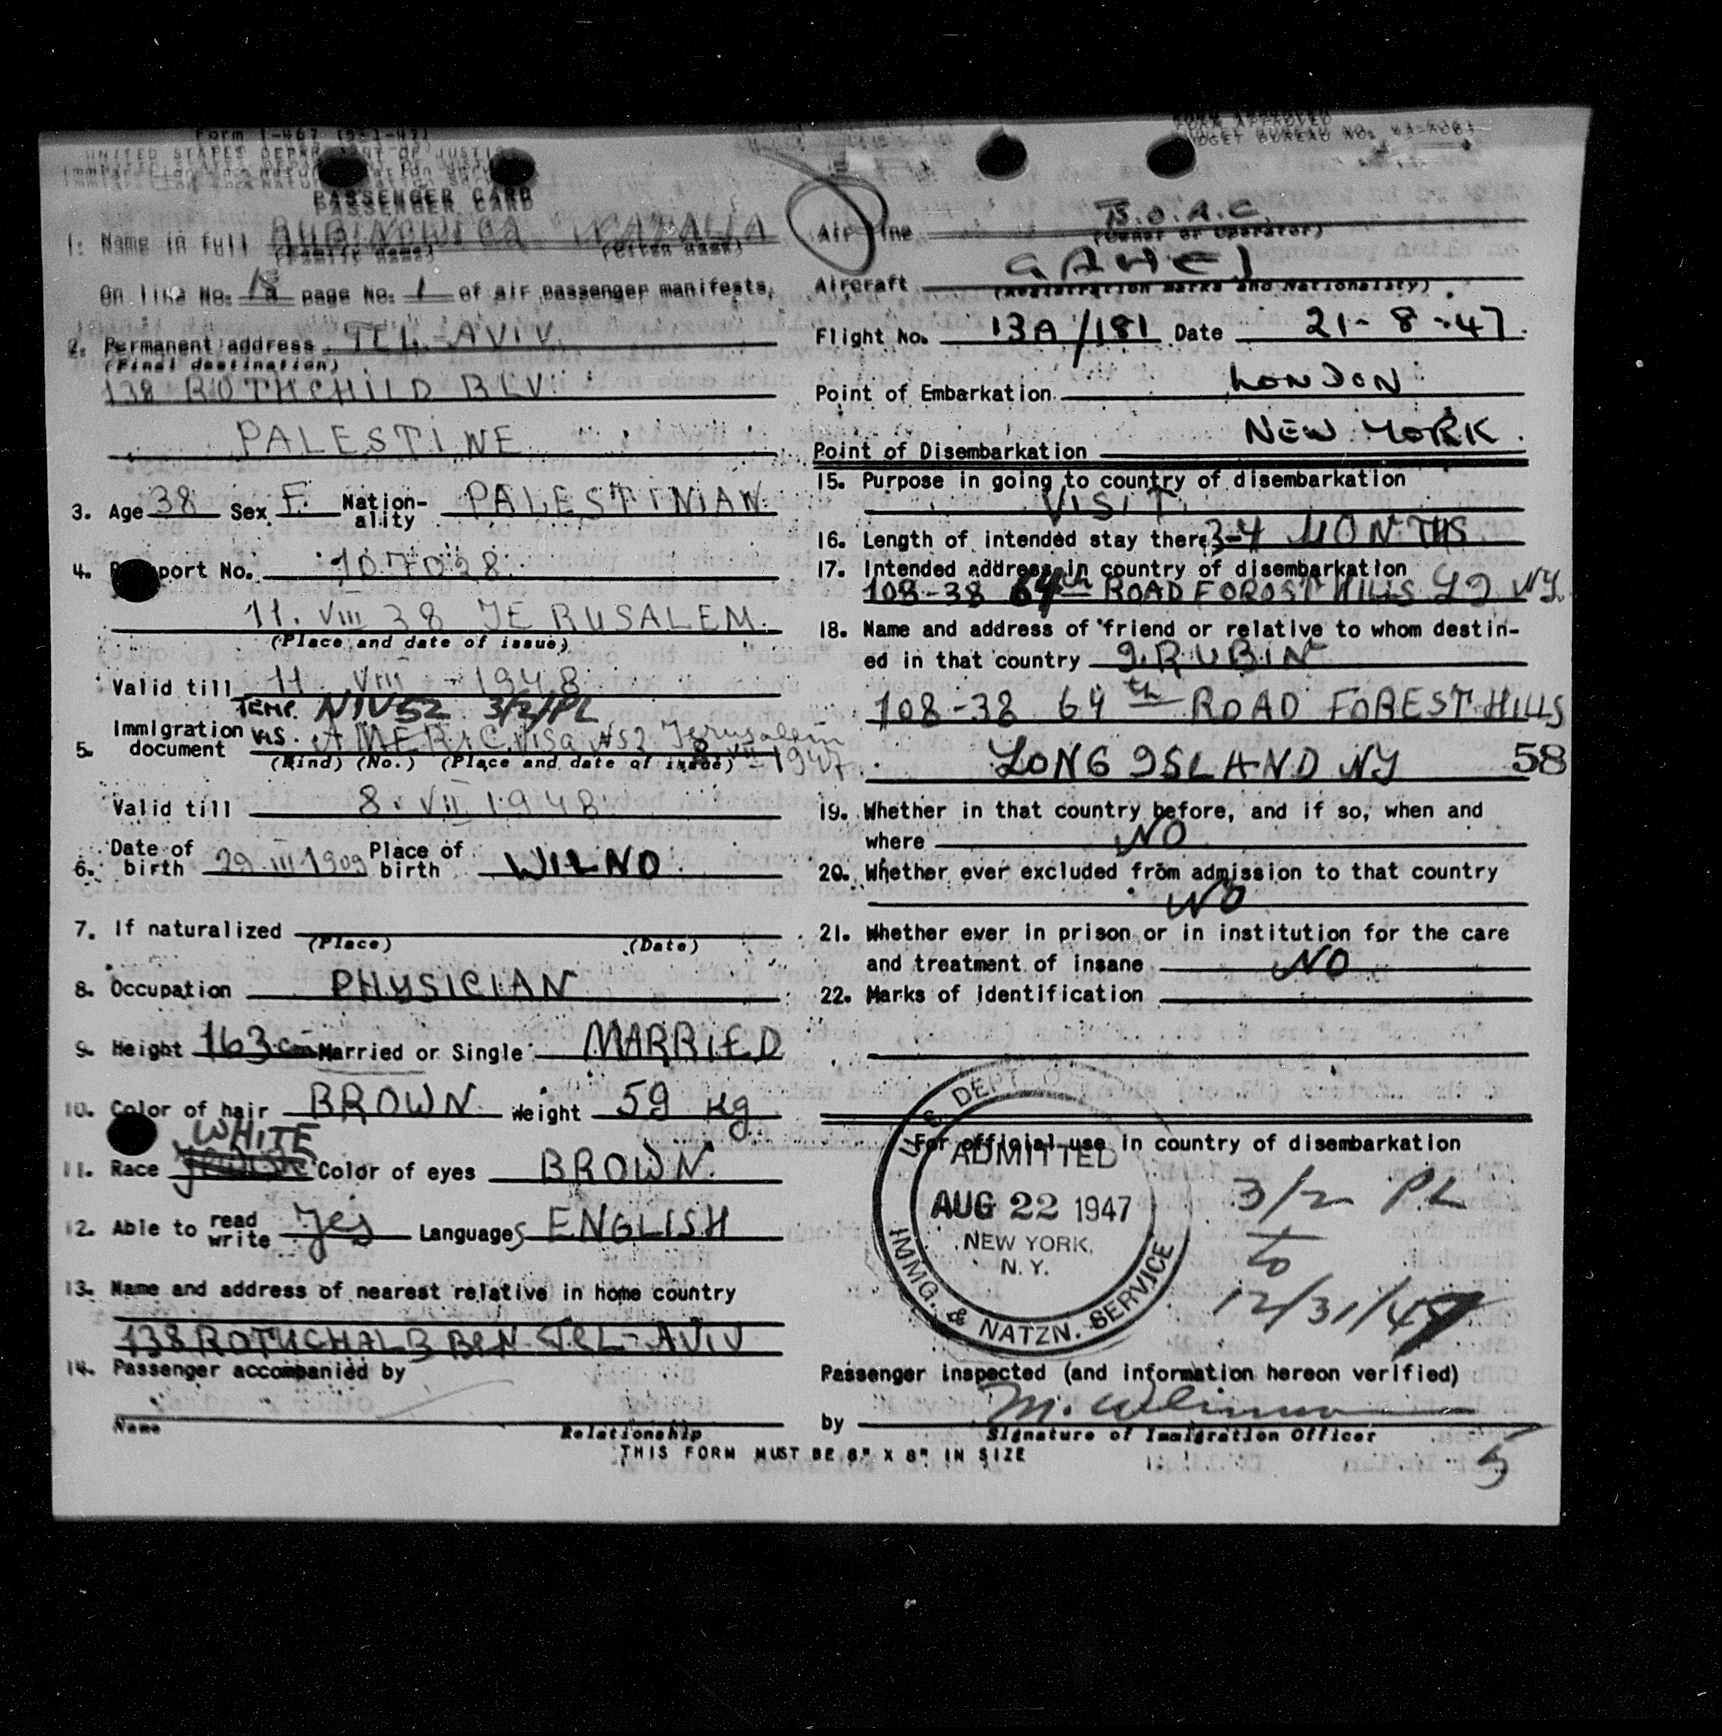 Form I-467
UNITED STATES DEPARTMENT OF JUSTICE
Immigration and Naturalization Service
PASSENGER CARD
1. Name in full
(Family name) (Given name)
On line No. page No. 1 of air passenger manifests.
2. Permanent address TEL-AVIV
(Final destination)
138 ROTHCHILD BLV.
PALESTINE
3. Age 38 Sex F. Nationality PALESTINIAN
4. Passport No. 107028
11. VIII 38 JERUSALEM.
(Place and date of issue)
Valid till 11. VIII - 1948
TEMP. NIV52 3/2/PL
5. Immigration document VIS. AMERIC. Visa N52 Jerusalem
(Kind) (No.) (Place and date of issue) 8 VII - 1947.
Valid till 8. VII 1948
6. Date of birth 29.III 1909 Place of birth WILNO
7. If naturalized
(Place) (Date)
8. Occupation PHYSICIAN
9. Height 163 cm Married or Single MARRIED
10. Color of hair BROWN Weight 59 Kg
WHITE
11. Race Color of eyes BROWN.
12. Able to read write Yes Languages ENGLISH
13. Name and address of nearest relative in home country
138 TEL-AVIV
14. Passenger accompanied by
Name Relationship
FORM APPROVED
BUDGET BUREAU NO.
Airline B.O.A.C.
(Owner or Operator)
Aircraft GAHEJ
(Registration marks and Nationality)
Flight No. 13A/181 Date 21-8-47.
Point of Embarkation LONDON
Point of Disembarkation NEW YORK.
15. Purpose in going to country of disembarkation
VISIT.
16. Length of intended stay there 3-4 MONTHS
17. Intended address in country of disembarkation
108-38 64th ROAD FOROST HILLS NY.
18. Name and address of friend or relative to whom destin-
ed in that country J. RUBIN
108-38 64th ROAD FOREST HILLS
LONG ISLAND NY 58
19. Whether in that country before, and if so, when and
where NO
20. Whether ever excluded from admission to that country
NO
21. Whether ever in prison or in institution for the care
and treatment of insane NO
22. Marks of identification
For official use in country of disembarkation
U.S. DEPT. OF
ADMITTED
AUG 22 1947
NEW YORK,
N. Y.
IMMG. & NATZN. SERVICE
3/2 PL
to
12/31/47
Passenger inspected (and information hereon verified)
by
Signature of Immigration Officer
THIS FORM MUST BE 8" X 8" IN SIZE
5